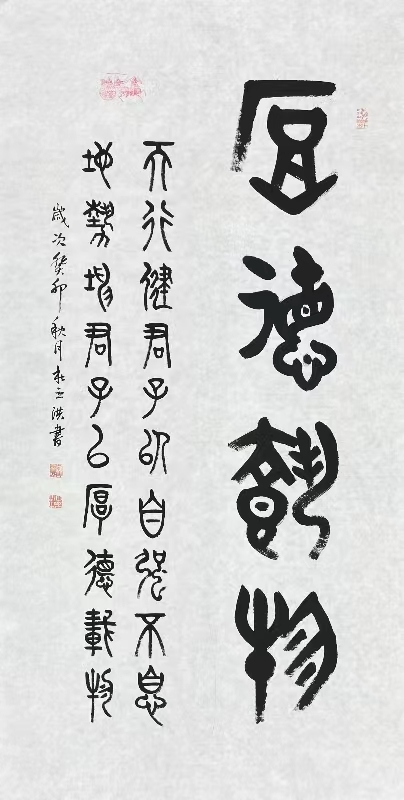 厚德載物
天行健君子以自強不息
地勢坤君子以厚德載物
歲次癸卯秋月朱立洪書